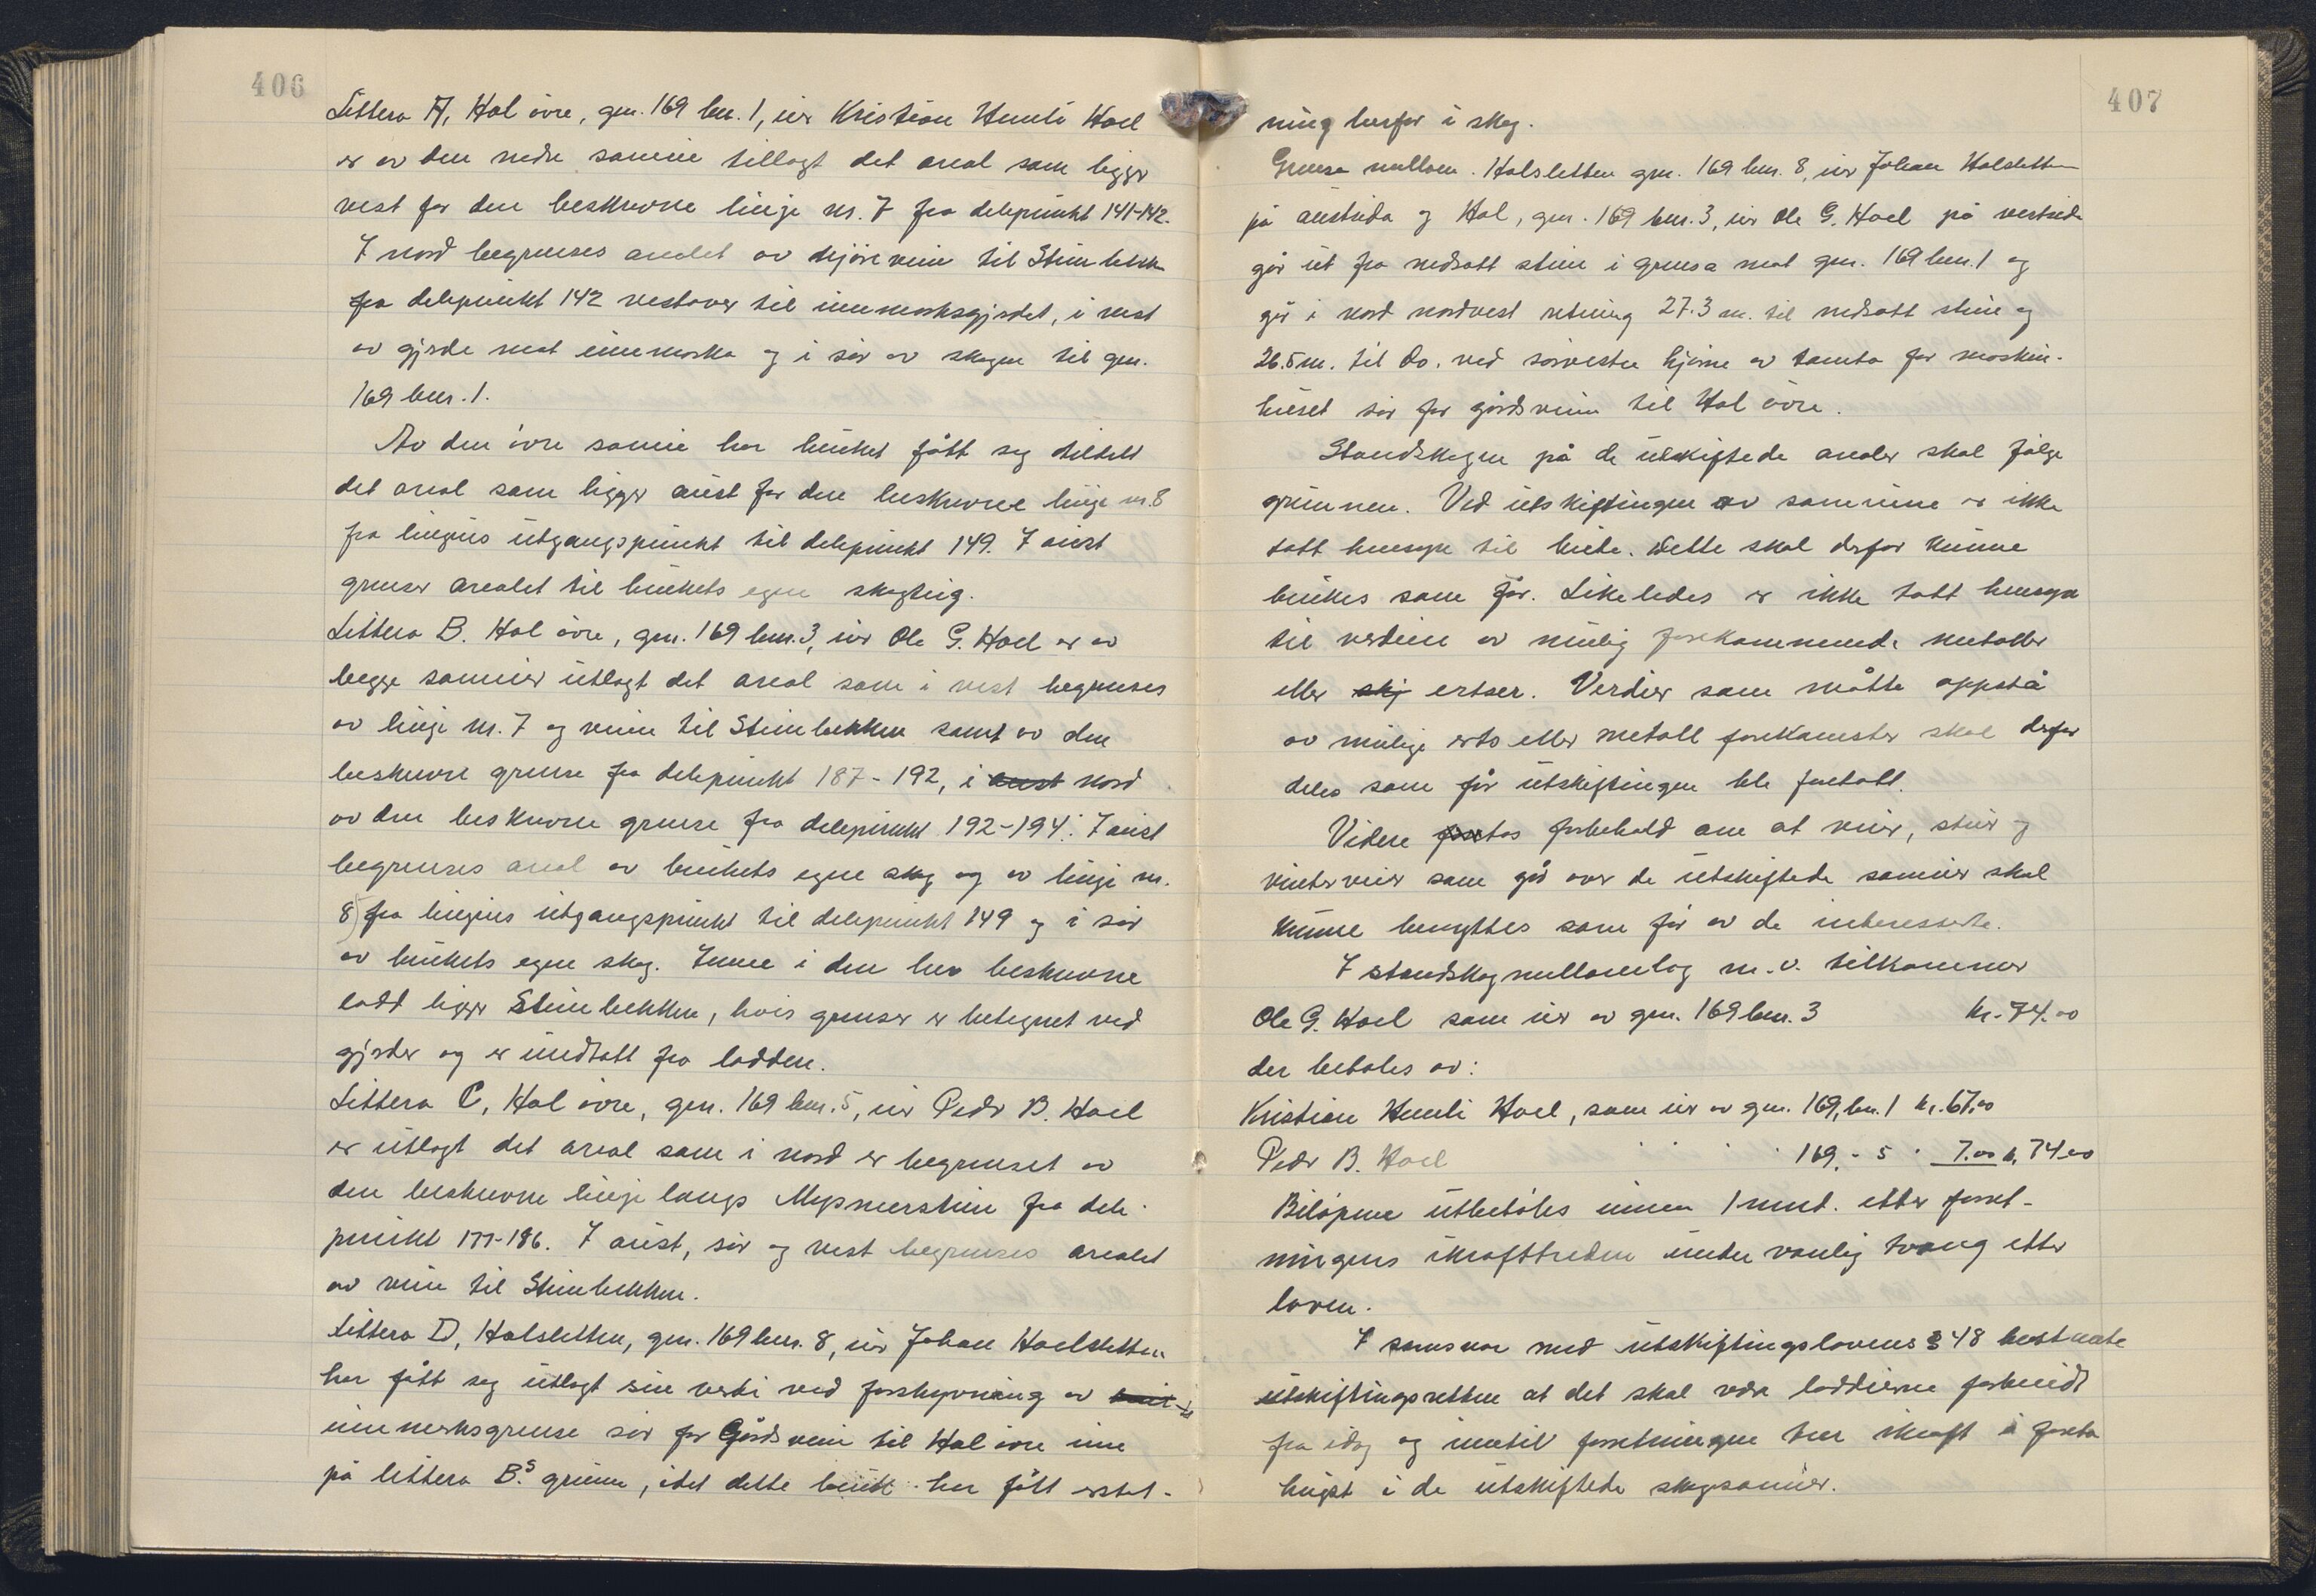 406
Littera A, Hol övre, gnr. 169 bnr. 1, eier Kristian Humli Hoel
er av den nedre sameie tillagt det areal som ligger
vest for den beskrevne linje nr. 7 fra delepunkt 141-142.
I nord begrenses arealet av kjöreveien til Steinbekken
fra delepunkt 142 vestover til innmarksgjerdet, i vest
av gjerde mot innmarka og i sör av skogen til gnr.
169 bnr. 1.
Av den övre sameie har bruket fått seg tildelt
det areal som ligger aust for den beskrevne linje nr. 8
fra linjens utgangspunkt til delepunkt 149. I aust
grenser arealet til brukets egen skogteig.
Littera B. Hol övre, gnr. 169 bnr. 3, eier Ole G. Hoel er av
begge sameier utlagt det areal som i vest begrenses
av linje nr. 7 og veien til Steinbekken samt av den
beskrevne grense fra delepunkt 187-192, i aust nord
av den beskrevne grense fra delepunkt 192-194. I aust
begrenses areal av brukets egen skog og av linje nr.
8) fra linjens utgangspunkt til delepunkt 149 og i sör
av brukets egen skog. Inne i den her beskrevne
lodd ligger Steinbekken, hvis grenser er betegnet ved
gjerder og er undtatt fra lodden.
Littera C, Hol övre, gnr. 169 bnr. 5, eier Peder B. Hoel
er utlagt det areal som i nord er begrenset av
den beskrevne linje langs Mysmerstien fra dele-
punkt 177-186. I aust, sör og vest begrenses arealet
av veien til Steinbekken.
Littera D, Holsletten, gnr. 169 bnr. 8, eier Johan Hoelsletten
har fått seg utlagt sin verdi ved forskyvning av
innmarksgrense sör for Gårdsveien til Hol övre inn
på littera B.s grunn, idet dette bruk har fått erstat-
407
ning herfor i skog.
Grensa mellom Holsletten gnr. 169 bnr. 8, eier Johan Holsletten
på austsida og Hol, gnr. 169 bnr. 3, eier Ole G. Hoel på vestsida
går ut fra nedsatt stein i grensa mot gnr. 169 bnr. 1 og
går i nord nordvest retning 27.3 m. til nedsatt stein og
26.5 m. til do. ved sörvestre hjörne av tomta for maskin-
huset sör for gårdsveien til Hol övre.
Standskogen på de utskiftede arealer skal fölge
grunnen. Ved utskiftingen av sameiene er ikke
tatt hensyn til beite. Dette skal derfor kunne
brukes som för. Likeledes er ikke tatt hensyn
til verdien av mulig forekommende metaller
eller skj ertser. Verdier som måtte oppstå
av mulige erts eller metall forekomster skal derfor
deles som för utskiftingen ble foretatt.
Videre tas forbehold om at veier, stier og
vinterveier som går over de utskiftede sameier skal
kunne benyttes som för av de interesserte.
I standskogmellomlag m.v. tilkommer
Ole G. Hoel som eier av gnr. 169 bnr. 3 kr. 74.00
der betales av:
Kristian Humli Hoel, som eier av gnr. 169, bnr. 1 kr. 67.00
Peder B. Hoel " " " " 169 - 5 " 7.00 kr. 74.00
Belöpene utbetales innen 1 mnd. etter forret-
ningens ikrafttreden under vanlig tvang etter
loven.
I samsvar med utskiftingslovens § 48 bestemte
utskiftingsretten at det skal være loddeierne forbudt
fra idag og inntil forretningen trer ikraft å foreta
hugst i de utskiftede skogsameier.